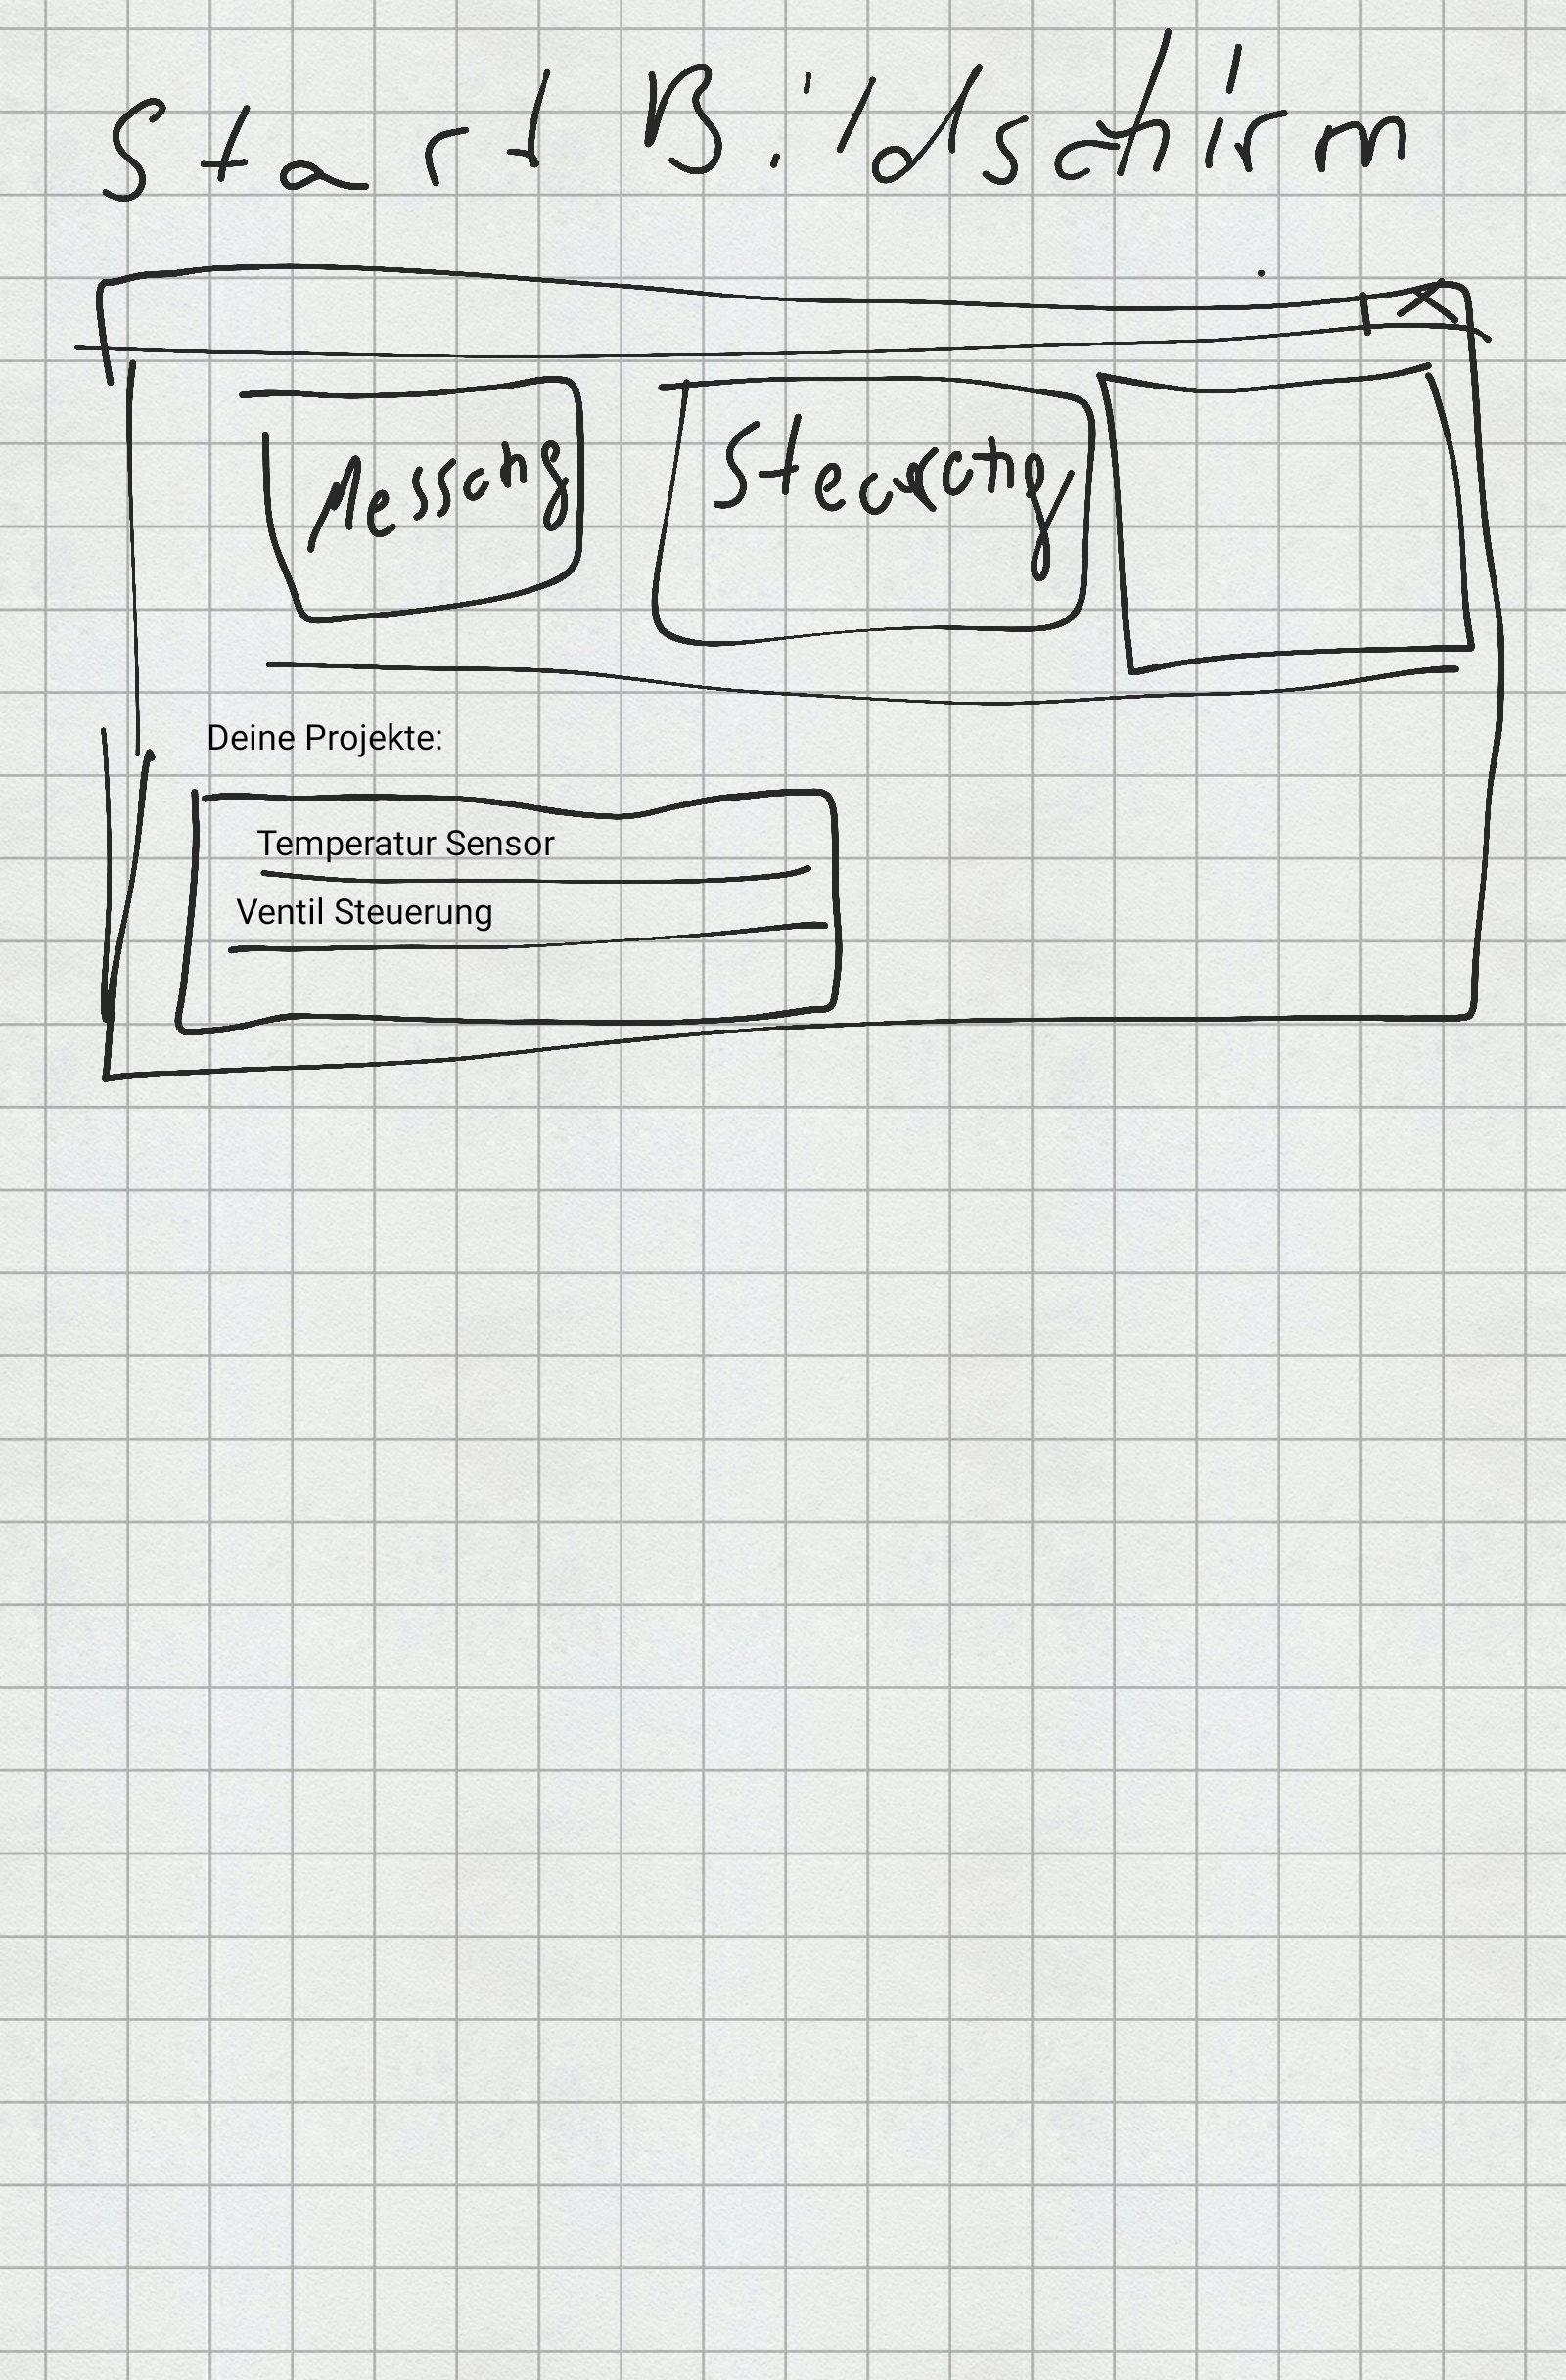 Start Bildschirm
X
Messung
Steurung
Deine Projekte:
Temperatur Sensor
Ventil Steuerung